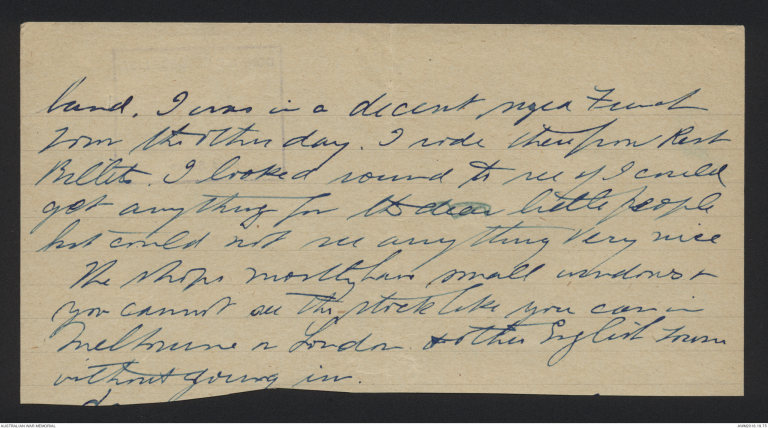 land. I was in a decent sized French
town the other day. I rode there from Rest
Billets. I looked round to see if I could
get anything for the dear little people
but could not see anything very nice
The shops mostly have small windows &
you cannot see the stock like you can in
Melbourne or London & other English towns
without going in.
AUSTRALIAN WAR MEMORIAL